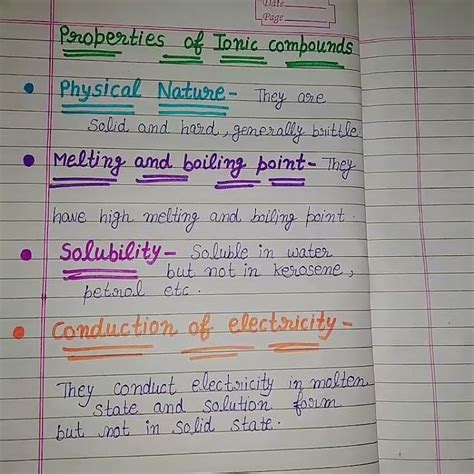 Date
Page
Properties of Ionic compounds
Physical Nature- They are
solid and hard, generally brittle
Melting and boiling point- They
have high melting and boiling point.
Solubility- Soluble in water
but not in kerosene,
petrol etc.
Conduction of electricity-
They conduct electricity in molten
state and solution form
but not in solid state.